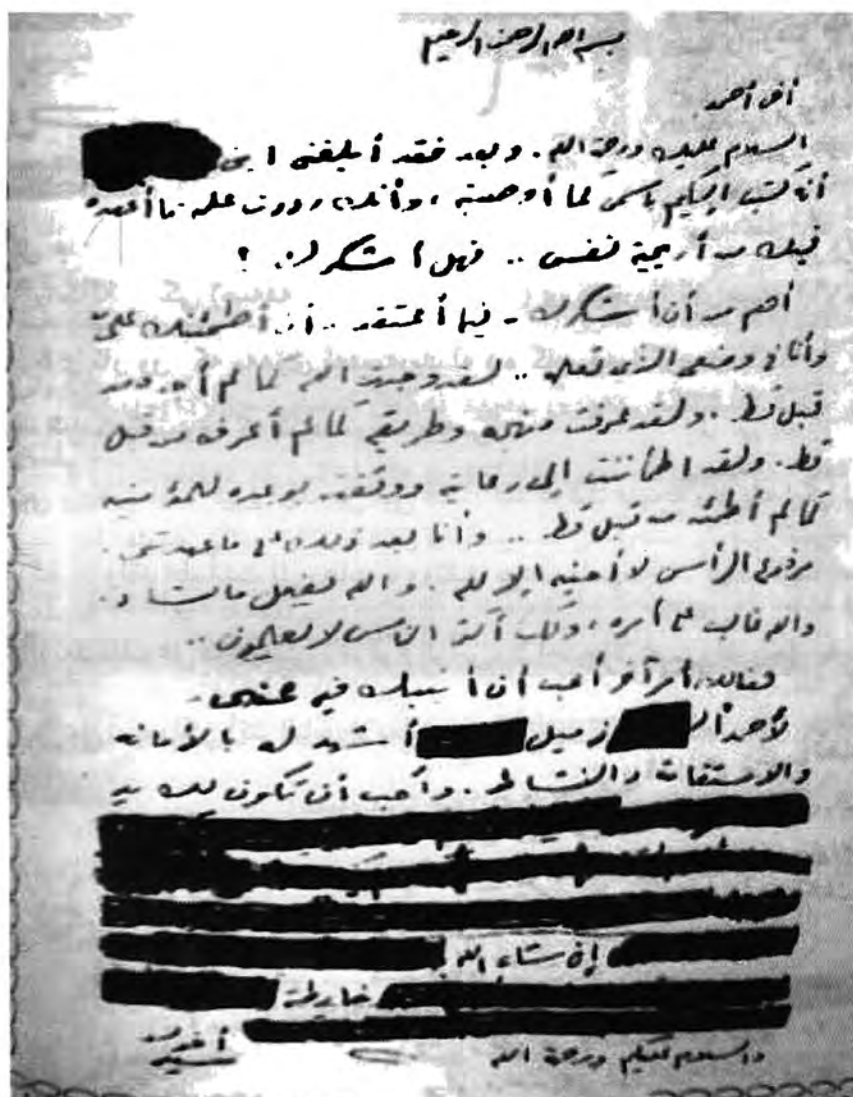 بسم الله الرحمن الرحيم
أخي أحمد
السلام عليك ورحمة الله . وبعد فقد أبلغني ابني
أنه كتب إليكم باسمي لما أوصيته ، وأنك رددت عليه بما أعهده
فيك من أريحية نفس .. فهل أشكرك ؟
أهم من أن أشكرك - فيما أعتقد .. أن أطمئنك عليّ
وأنا في وضعي الذي تعلم .. لقد وجدت الله كما لم أجده من
قبل قط . ولقد عرفت منهجه وطريقه كما لم أعرف من قبل
قط . ولقد اطمأننت إلى رعايته ووثقت بوعده للمؤمنين
كما لم أطمئن من قبل قط .. وأنا بعد ذلك على ما عهدتني .
مرفوع الرأس لا أحنيه إلا لله . والله يفعل ما يشاء .
والله غالب على أمره ، ولكن أكثر الناس لا يعلمون ..
هنالك أمر آخر أحب أن أنيبك فيه عني .
لأحد الـ زميل أشهد له بالأمانة
والاستقامة والنشاط . وأحب أن تكون لك يد
إن شاء الله
خارطة
والسلام عليكم ورحمة الله
أخوك
سيد